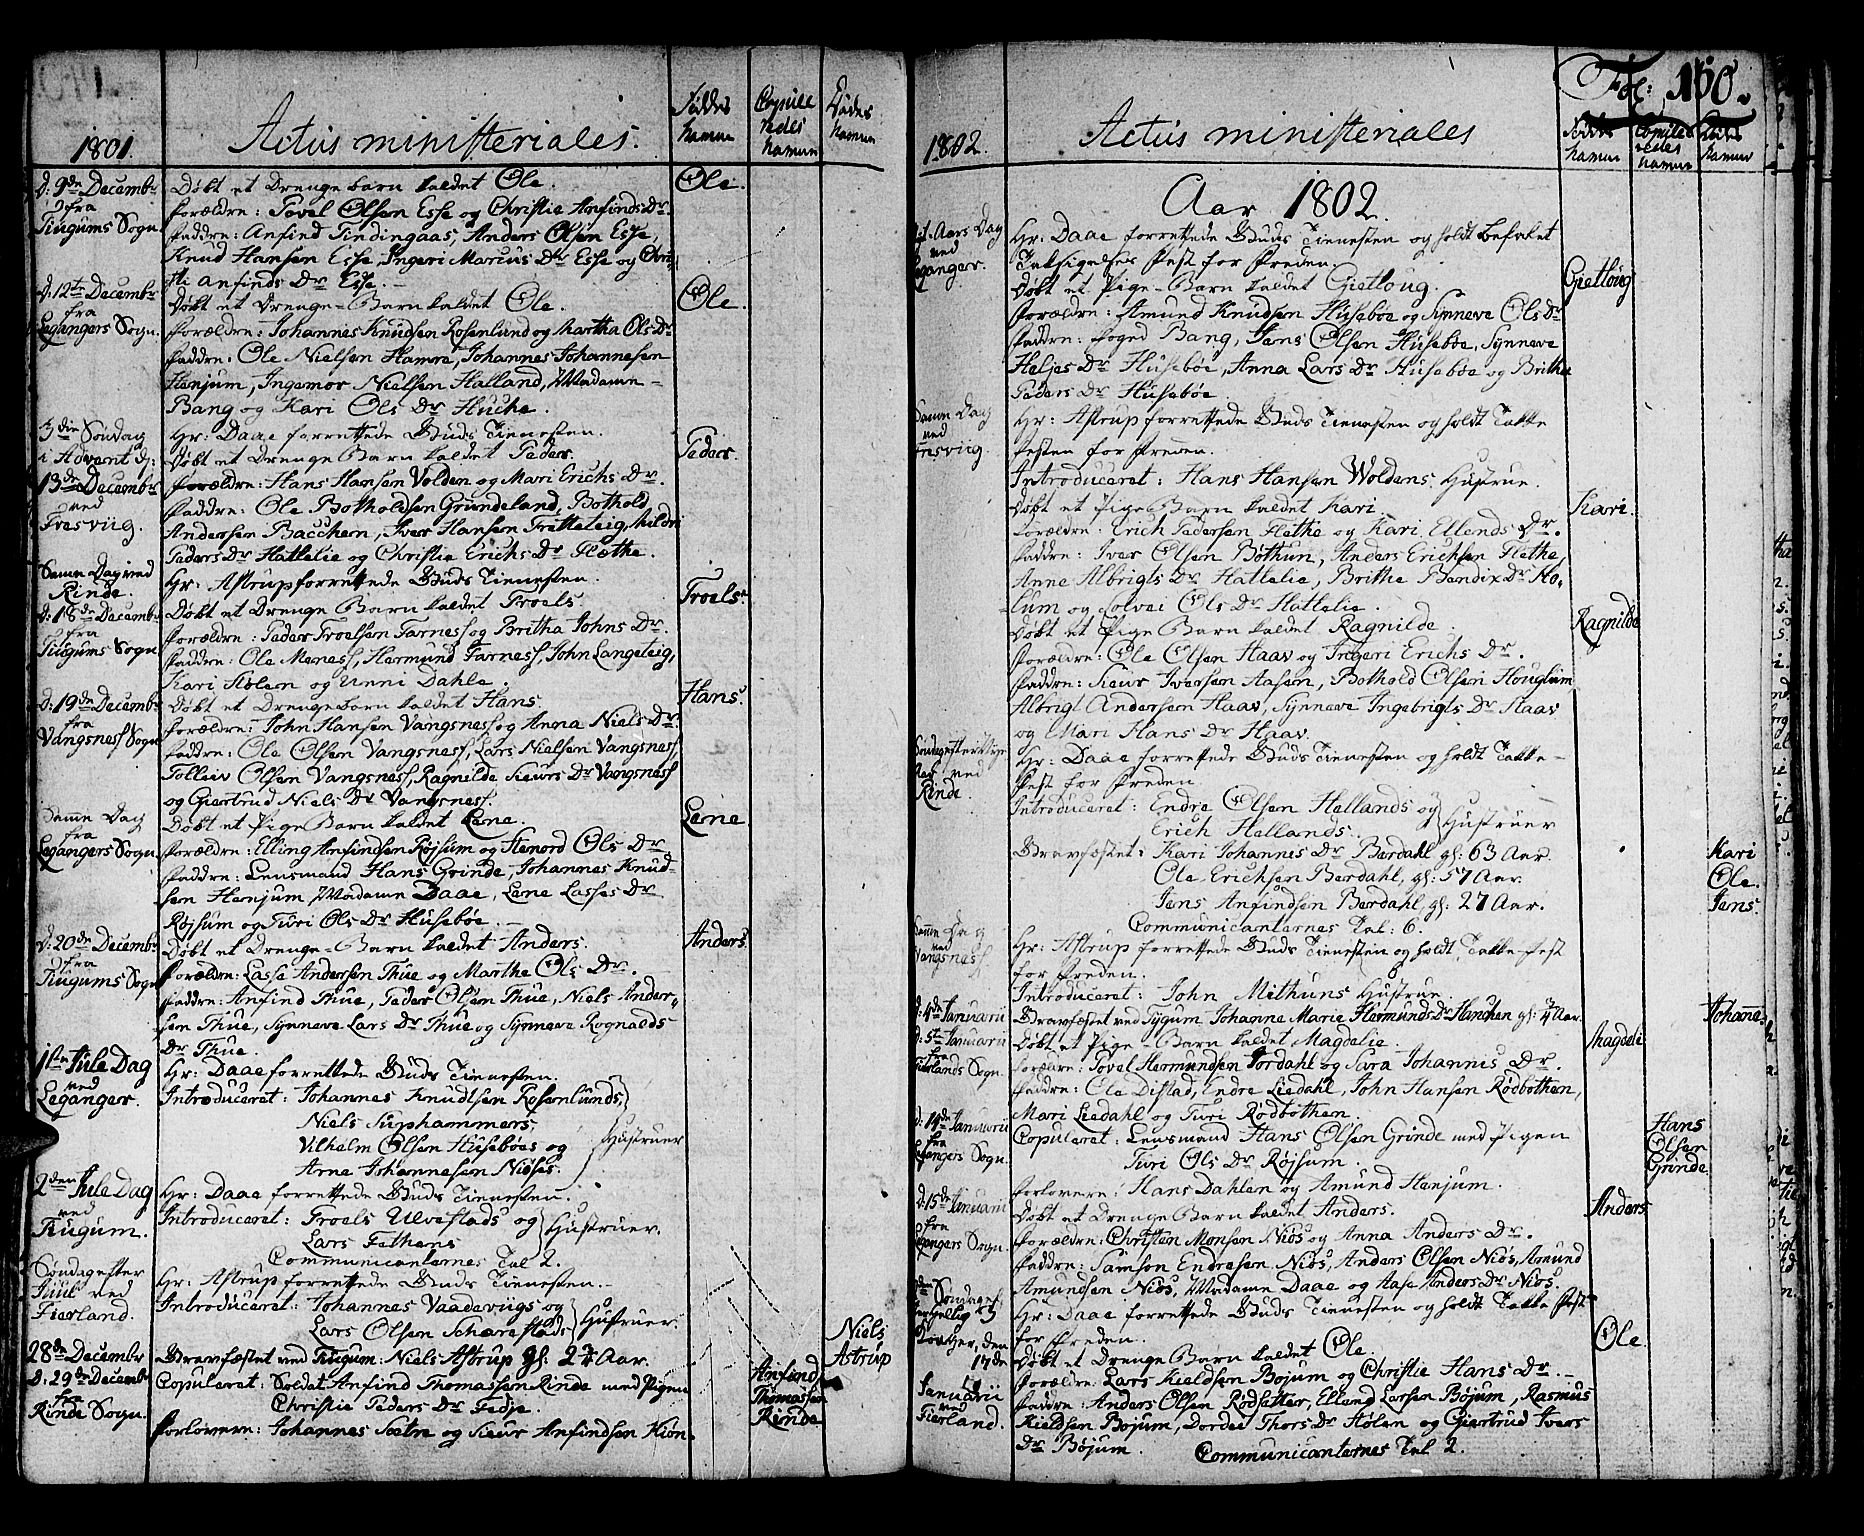 1801.
Actus ministeriales.
Føddes
Navne
Copule
redes
Navne
Dødes
Navne
d: 9de Decembr
fra
Tiugums Sogn.
Døbt et Drengebarn kaldet Ole.
Ole.
Forældre: Povel Olsen Esse og Christie Anfinds Dr.
Faddre: Anfind Tindingaas, Anders Olsen Esse,
Knud Hansen Esse, Ingeri Marius Dr Esse og Chri-
sti Anfinds Dr Esse.
d: 12te Decembr
fra
Legangers Sogn.
Døbt et Drenge-Barn kaldet Ole.
Ole.
Forældre: Johannes Knudsen Rosenlund og Martha Ols Dr
Faddre: Ole Nielsen Hamre, Johannes Johannesen
Henjum, Ingemor Nielsen Halland, Madame
Bang og Kari Ols Dr Huche.
3die Søndag
i Advent d:
13de Decembr
ved
Fresviig.
Hr: Daae forrettede Guds Tienesten.
Døbt et Drenge Barn kaldet Peder.
Peder.
Forældre: Hans Hansen Volden og Mari Erichs Dr.
Faddre: Ole Botholdsen Grundeland, Bothold
Andersen Bacchen, Iver Hansen Tretteteig, Mildri
Peders Dr Hatlelie og Christie Erichs Dr Flethe.
Samme Dag ved
Rinde.
Hr: Astrup forrettede Guds Tienesten.
d: 18de Decembr
fra
Tiugums Sogn
Døbt et Drenge Barn kaldet Troels
Troels.
Forældre: Peder Troelsen Farness og Britha Johns Dr.
Faddre: Ole Meness, Hermund Farness, John Langeteig,
Kari Holen og Unni Dahle.
d: 19de Decembr
fra
Vangsness Sogn
Døbt et Drengebarn kaldet Hans.
Hans.
Forældre: John Hansen Vangsness og Anna Niels Dr
Faddre: Ole Olsen Vangsness, Lars Nielsen Vangsness
Tolliev Olsen Vangsness, Ragnilde Sieurs Dr Vangsness
og Giertrud Niels Dr Vangsness.
Samme Dag
fra
Legangers Sogn.
Døbt et Pige Barn kaldet Lene.
Lene
Forældre: Elling Anfindsen Røjsum og Stenord Ols Dr
Faddre: Lensmand Hans Grinde, Johannes Knud-
sen Henjum, Madame Daae, Lene Lasses Dr
Røjsum og Turi Ols Dr Husebøe.
d: 20de Decembr
fra
Tiugums Sogn
Døbt et Drenge-Barn kaldet Anders.
Anders.
Forældre: Lasse Andersen Thue og Marthe Ols Dr.
Faddre: Anfind Thue, Peder Olsen Thue, Niels Ander-
sen Thue, Synneve Lars Dr Thue og Synneve Rognalds
Dr Thue.
1ste Jule Dag
ved
Leganger.
Hr: Daae forrettede Guds Tienesten.
Introduceret: Johannes Knudtsen Rosenlunds,
Niels Suphammers,
Vilhelm Olsen Husebøes og
Arne Johannesen Niøses.
Hustruer
2den Jule Dag
ved
Tiugum.
Hr: Daae forrettede Guds Tienesten.
Introduceret: Troels Ulvestads og
Lars Fethens
Hustruer.
Communicanternes Tal 2.
Søndag efter
Juul ved
Fierland.
Hr: Astrup forrettede Guds Tienesten.
Introduceret: Johannes Vaadeviigs og
Lars Olsen Scharestads
Hustruer.
28de Decembr
Gravfæstet ved Tiugum: Niels Astrup gl: 24 Aar.
Niels
Astrup
d: 29de Decembr
fra
Rinde Sogn.
Copuleret: Soldat Anfind Thomassen Rinde med Pigen
Christie Peders Dr Fedje.
Anfind
Thomassen
Rinde
Forlovere: Johannes Sætre og Sieur Anfindsen Kiøn-
Fol: 150.
1802.
Actus ministeriales
Føddes
Navne
Copule
redes
Navne
Dødes
Navne
Aar 1802.
Aars Dag
ved
Leganger.
Hr: Daae forrettede Guds Tienesten og holdt befalet
Taksigelses Fest for Freden.
Døbt et Pige-Barn kaldet Gietloug.
Gietloug
Forældre: Amund Knudsen Husebøe og Synneve Ols Dr
Faddre: Foged Bang, Jens Olsen Husebøe, Synneve
Heljes Dr Husebøe, Anna Lars Dr Husebøe og Brithe
Peders Dr Husebøe.
Samme Dag
ved
Fresviig
Hr: Astrup forrettede Guds Tienesten og holdt Takke
Festen for Freden.
Introduceret: Hans Hansen Woldens Hustrue.
Døbt et Pige Barn kaldet Kari.
Kari.
Forældre: Erich Pedersen Flethe og Kari Ellends Dr.
Faddre: Iver Olsen Bøthun, Anders Erichsen Flethe,
Anne Albrigts Dr Hatlelie, Brithe Bendix Dr Ho-
lum og Solvei Ols Dr Hatlelie.
Døbt et Pige Barn kaldet Ragnilde.
Ragnilde
Forældre: Ole Olsen Haav og Ingeri Erichs Dr.
Faddre: Sieur Iversen Aasen, Bothold Olsen Houglum
Albrigt Andersen Haav, Synneve Ingebrigts Dr Haav
og Mari Hans Dr Haav.
Søndag efter Nye
Aar ved
Rinde.
Hr: Daae forrettede Guds Tienesten og holdt Takke-
Fest for Freden
Introduceret: Endre Olsen Hellands og
Erich Hellands.
Hustruer
Gravfæstet: Kari Johannes Dr Berdahl gl: 63 Aar.
Kari
Ole Erichsen Berdahl, gl: 57 Aar.
Ole.
Jens Anfindsen Berdahl, gl: 27 Aar.
Jens.
Communicanternes Tal: 6.
Samme Dag
ved
Vangsness.
Hr: Astrup forrettede Guds Tienesten og holdt Takke-Fest
for Freden.
Introduceret: John Mithuns Hustrue.
d: 4de Januarii
Gravfæstet ved Tygum Johanne Marie Hermunds Dr Hanchen gl: 4 Aar.
Johanne.
d: 5te Januarii
fra
Fierlands Sogn.
Døbt et Pige-Barn kaldet Magdelie.
Magdeli
Forældre: Povel Hermundsen Jordahl og Sara Johannis Dr.
Faddre: Ole Distad, Endre Liedahl, John Hansen Rødbotten,
Mari Liedahl og Turi Rødbothen.
d: 14de Januarii
fra
Legangers Sogn.
Copuleret: Lensmand Hans Olsen Grinde med Pigen
Turi Ols Dr Røjsum.
Hans
Olsen
Grinde
Forlovere: Hans Dahlen og Amund Henjum.
d: 15de Januarii
fra
Legangers Sogn.
Døbt et Drenge Barn kaldet Anders.
Anders
Forældre: Christen Monsen Niøs og Anna Anders Dr.
Faddre: Samson Endresen Niøs, Anders Olsen Niøs, Amund
Amundsen Niøs, Madame Daae og Aase Anders Dr Niøs.
Søndag ef.
Hellig 3
Konger, den
17de
Januarii
ved
Fierland.
Hr: Daae forrettede Guds Tienesten og holdt Takke Fest
for Freden.
Døbt et Drenge Barn kaldet Ole.
Ole
Forældre: Lars Kieldsen Bojum og Christie Hans Dr.
Faddre: Anders Olsen Rødsetter, Ellend Larsen Bøjum, Rasmus
Kieldsen Bojum, Dordei Thors Dr Holen og Giertrud Ivers
Dr Bøjum.
Communicanternes Tal 2.